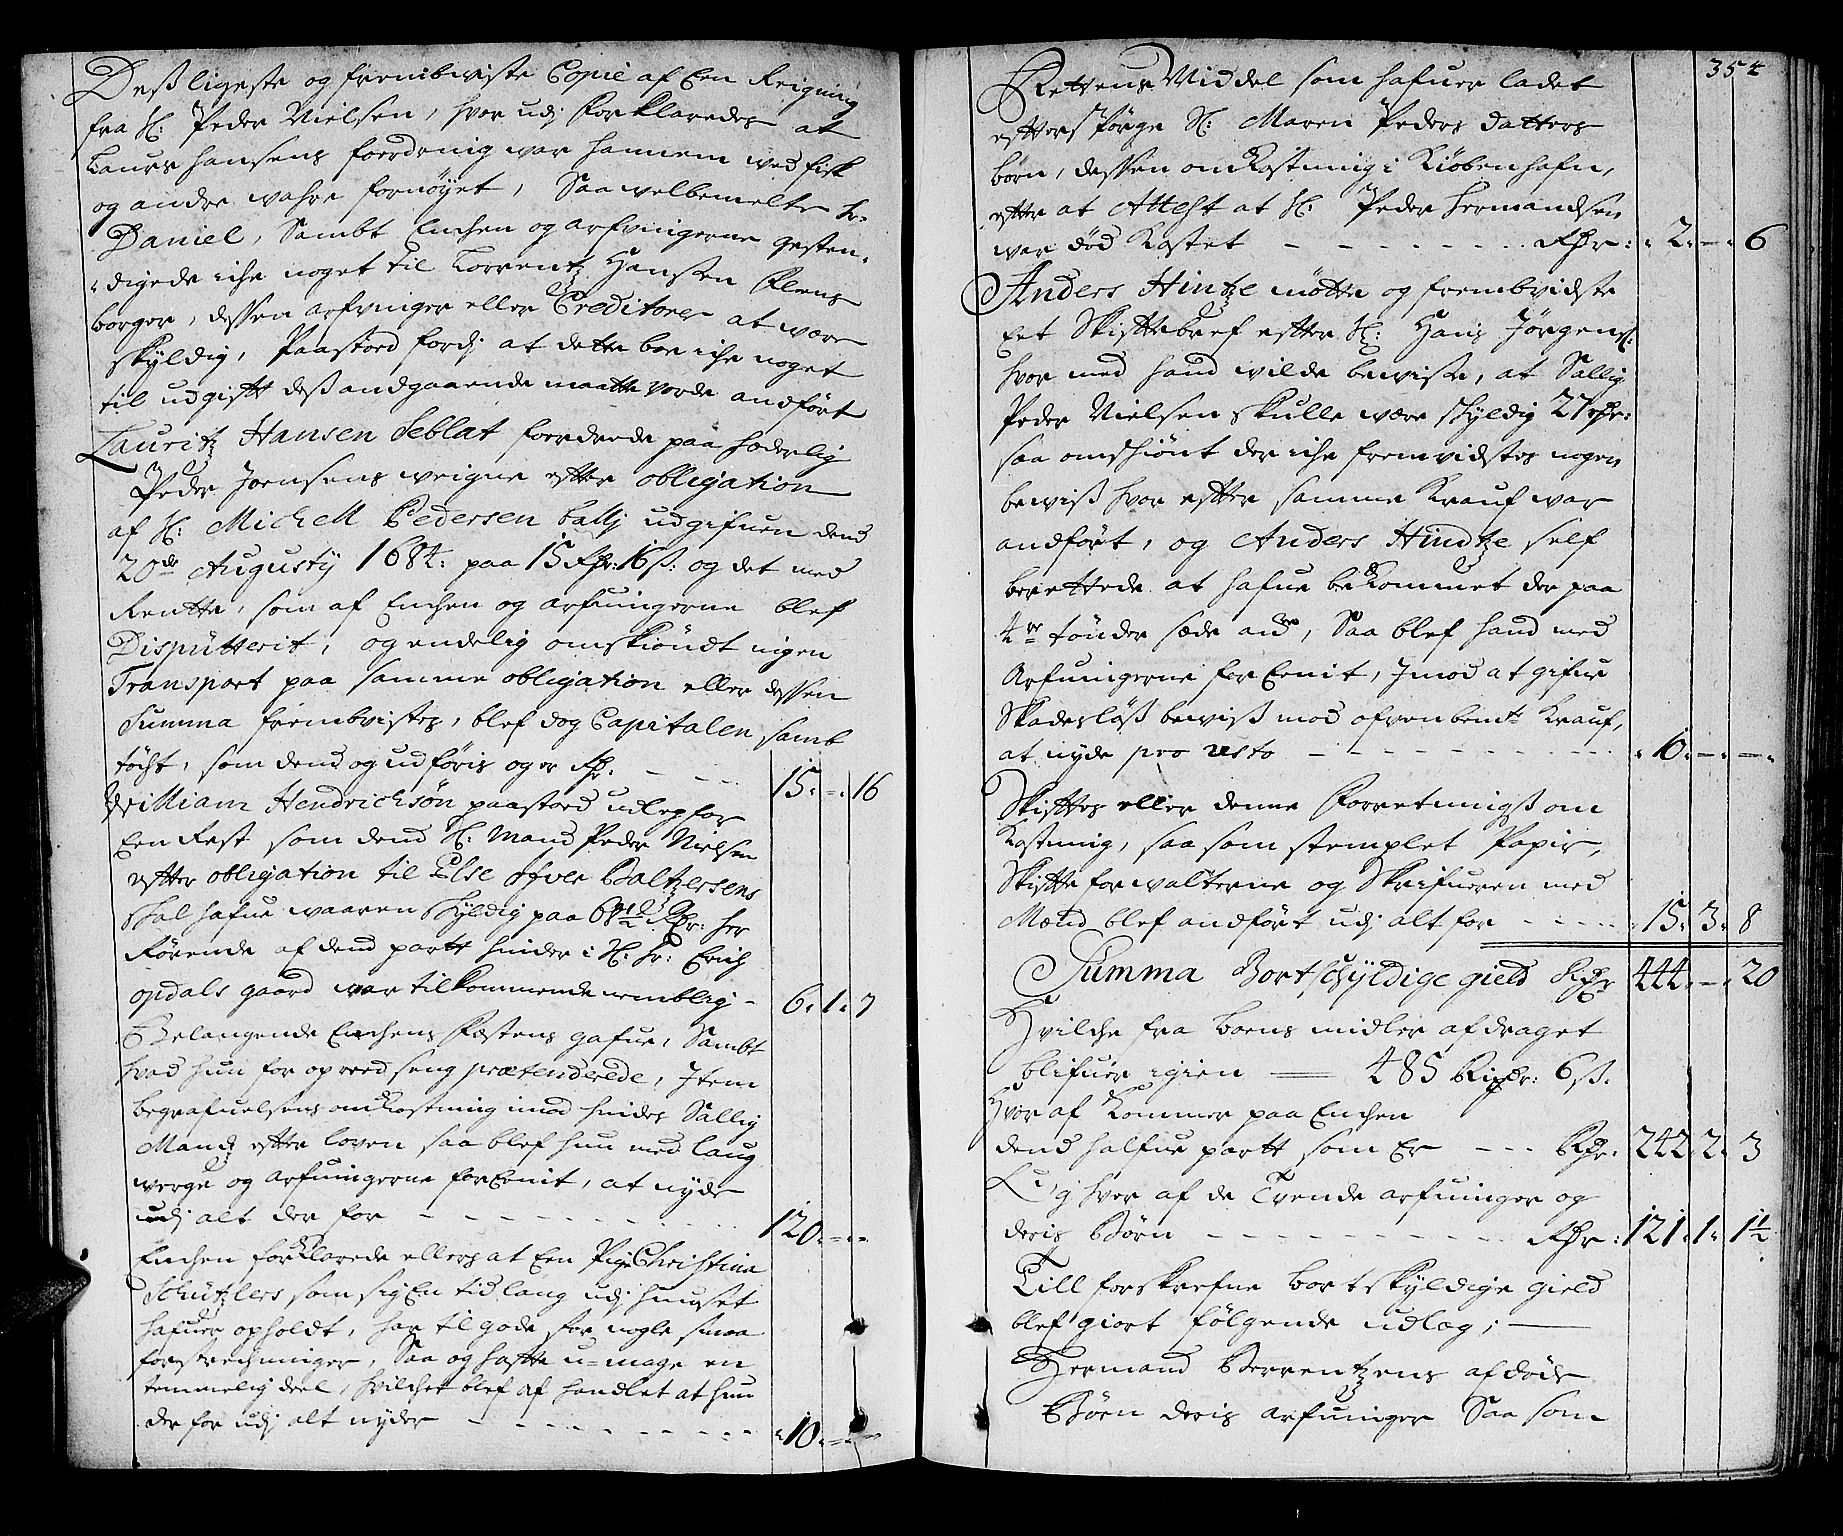 Desligeste og frembviste Copie af Een Reigning
fra Sl: Peder Nielsen, hvor udj forklaredes at
Laurs Hansens fordrenig war hannem wed fisk
og andre wahre fornøyet, Saa welbemelte hr:
Daniel, Sambt Enchen og arfvingerne gesten-
digede iche noget til Lorrentz Hansen Flens
borger, dessen arfvinger eller Creditorer at være
skyldig, Paastod fordj at dette bør iche noget
til udgift desandgaaende maatte vorde andført
Lauritz Hansen Seblat fordrede paa hæderlig
Peder Joensens weigne efter obligation
af Sl: Michell Pedersen Ballj udgifuen dend
20de Augusty 1684: paa 15 Rdr: 16 ß: og det med
Rentte, som af Enchen og arfuingerne blef
Disputterit, og endelig omskiøndt ingen
Transport paa samme obligation eller dessen
Summa frembvistes, blef dog Capitalen samb
tøcht, som dend og udføris og er Rdr: 15 - 16
William Hendrichsøn paastod udleg for
Een Rest som dend Sl: Mand Peder Nielsen
efter obligation til Else Iffver Baltzersens
skal hafue waaren skyldig paa 68½ Rdr: her
Rørende af dend partt hinder i Sl: hr: Erich
opdals gaard war tilkommende nemblig - 6 - 1 - 7
Belangende Enchens Festens gafue, Sambt
hvad hun for opreed seng prætenderede, Item
begrafuelsens omkostning imod hindes Sallig
Mand efter loven saa blef hun med laug
werge og arfuingerne forEenit, at nyde
udj alt der for - - - 120 - -
Enchen forklarede ellers at Een Pige Christina
Schutzlers som sig En tid lang udj huuset
hafuer opholdt, har til gode for nogle smaa
forstrechninger, Saa og hafte u-mage en
temmelig deel, hvilchet blef af handlet at hun
der for udj alt nyder - - - 10 - -
354
Rettens Middel som hafuer ladet
efterspørge Sl: Maren Peders datters
børn, dessen omKostning i Kiøbenhafn,
efter at Attest at Sl: Peder Hermandsen
war død Kostet - - - Rdr: 2 - 6
Anders Hintze mötte og frembvidste
Eet Skiftebref efter Sl: Hans Jørgens:
hvor med hand wilde bewise, at Sallig
Peder Nielsen skulle være skyldig 27 rdr:
saa omskiönt der iche fremvidstes nogen
bewiß hvor efter samme Krauf war
andført, og Anders Hindtze self
berettede at hafue beKommet der paa
4re tønder sæde aid, Saa blef hand med
Arfuingerne forEenit, Imod at gifue
Skadesløß bewiß mod ofvenbemte Krauf,
at nyde pro resto - - - 10 - -
Skiftes eller denne Forretnings om
Kostning, saa som stemplet Papir,
Skifteforwalterne og Skrifueren med
Mænd blef andført udj alt for - - - 15 - 3 - 8
Summa Bortschyldige gield Rdr 444 - 20
Hvilche fra boens midler afdraget
blifuer igien — 485 Rixdr: 6 ß:
Hvor af Kommer paa Enchen
dend halfue partt som Er - - - Rdr: 242 - 2 - 3
Og hver af de Tvende arfuinger og
deris Børn - - - Rdr: 121 - 1 - 1½
Till forskrefne bortskyldige gield
blef giort følgende udlag; —
Hermand Berrentzens afdøde
Børn deris arfuinger Saa som